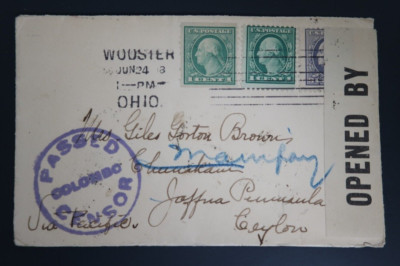 WOOSTER
JUN 24
1—PM
OHIO.
U.S. POSTAGE
1 CENT 1
U.S. POSTAGE
1 CENT 1
OPENED BY
PASSED
COLOMBO
CENSOR
Mrs Giles Gorton Brown
Manipay
Jaffna Peninsula
Via Pacific.
Ceylon